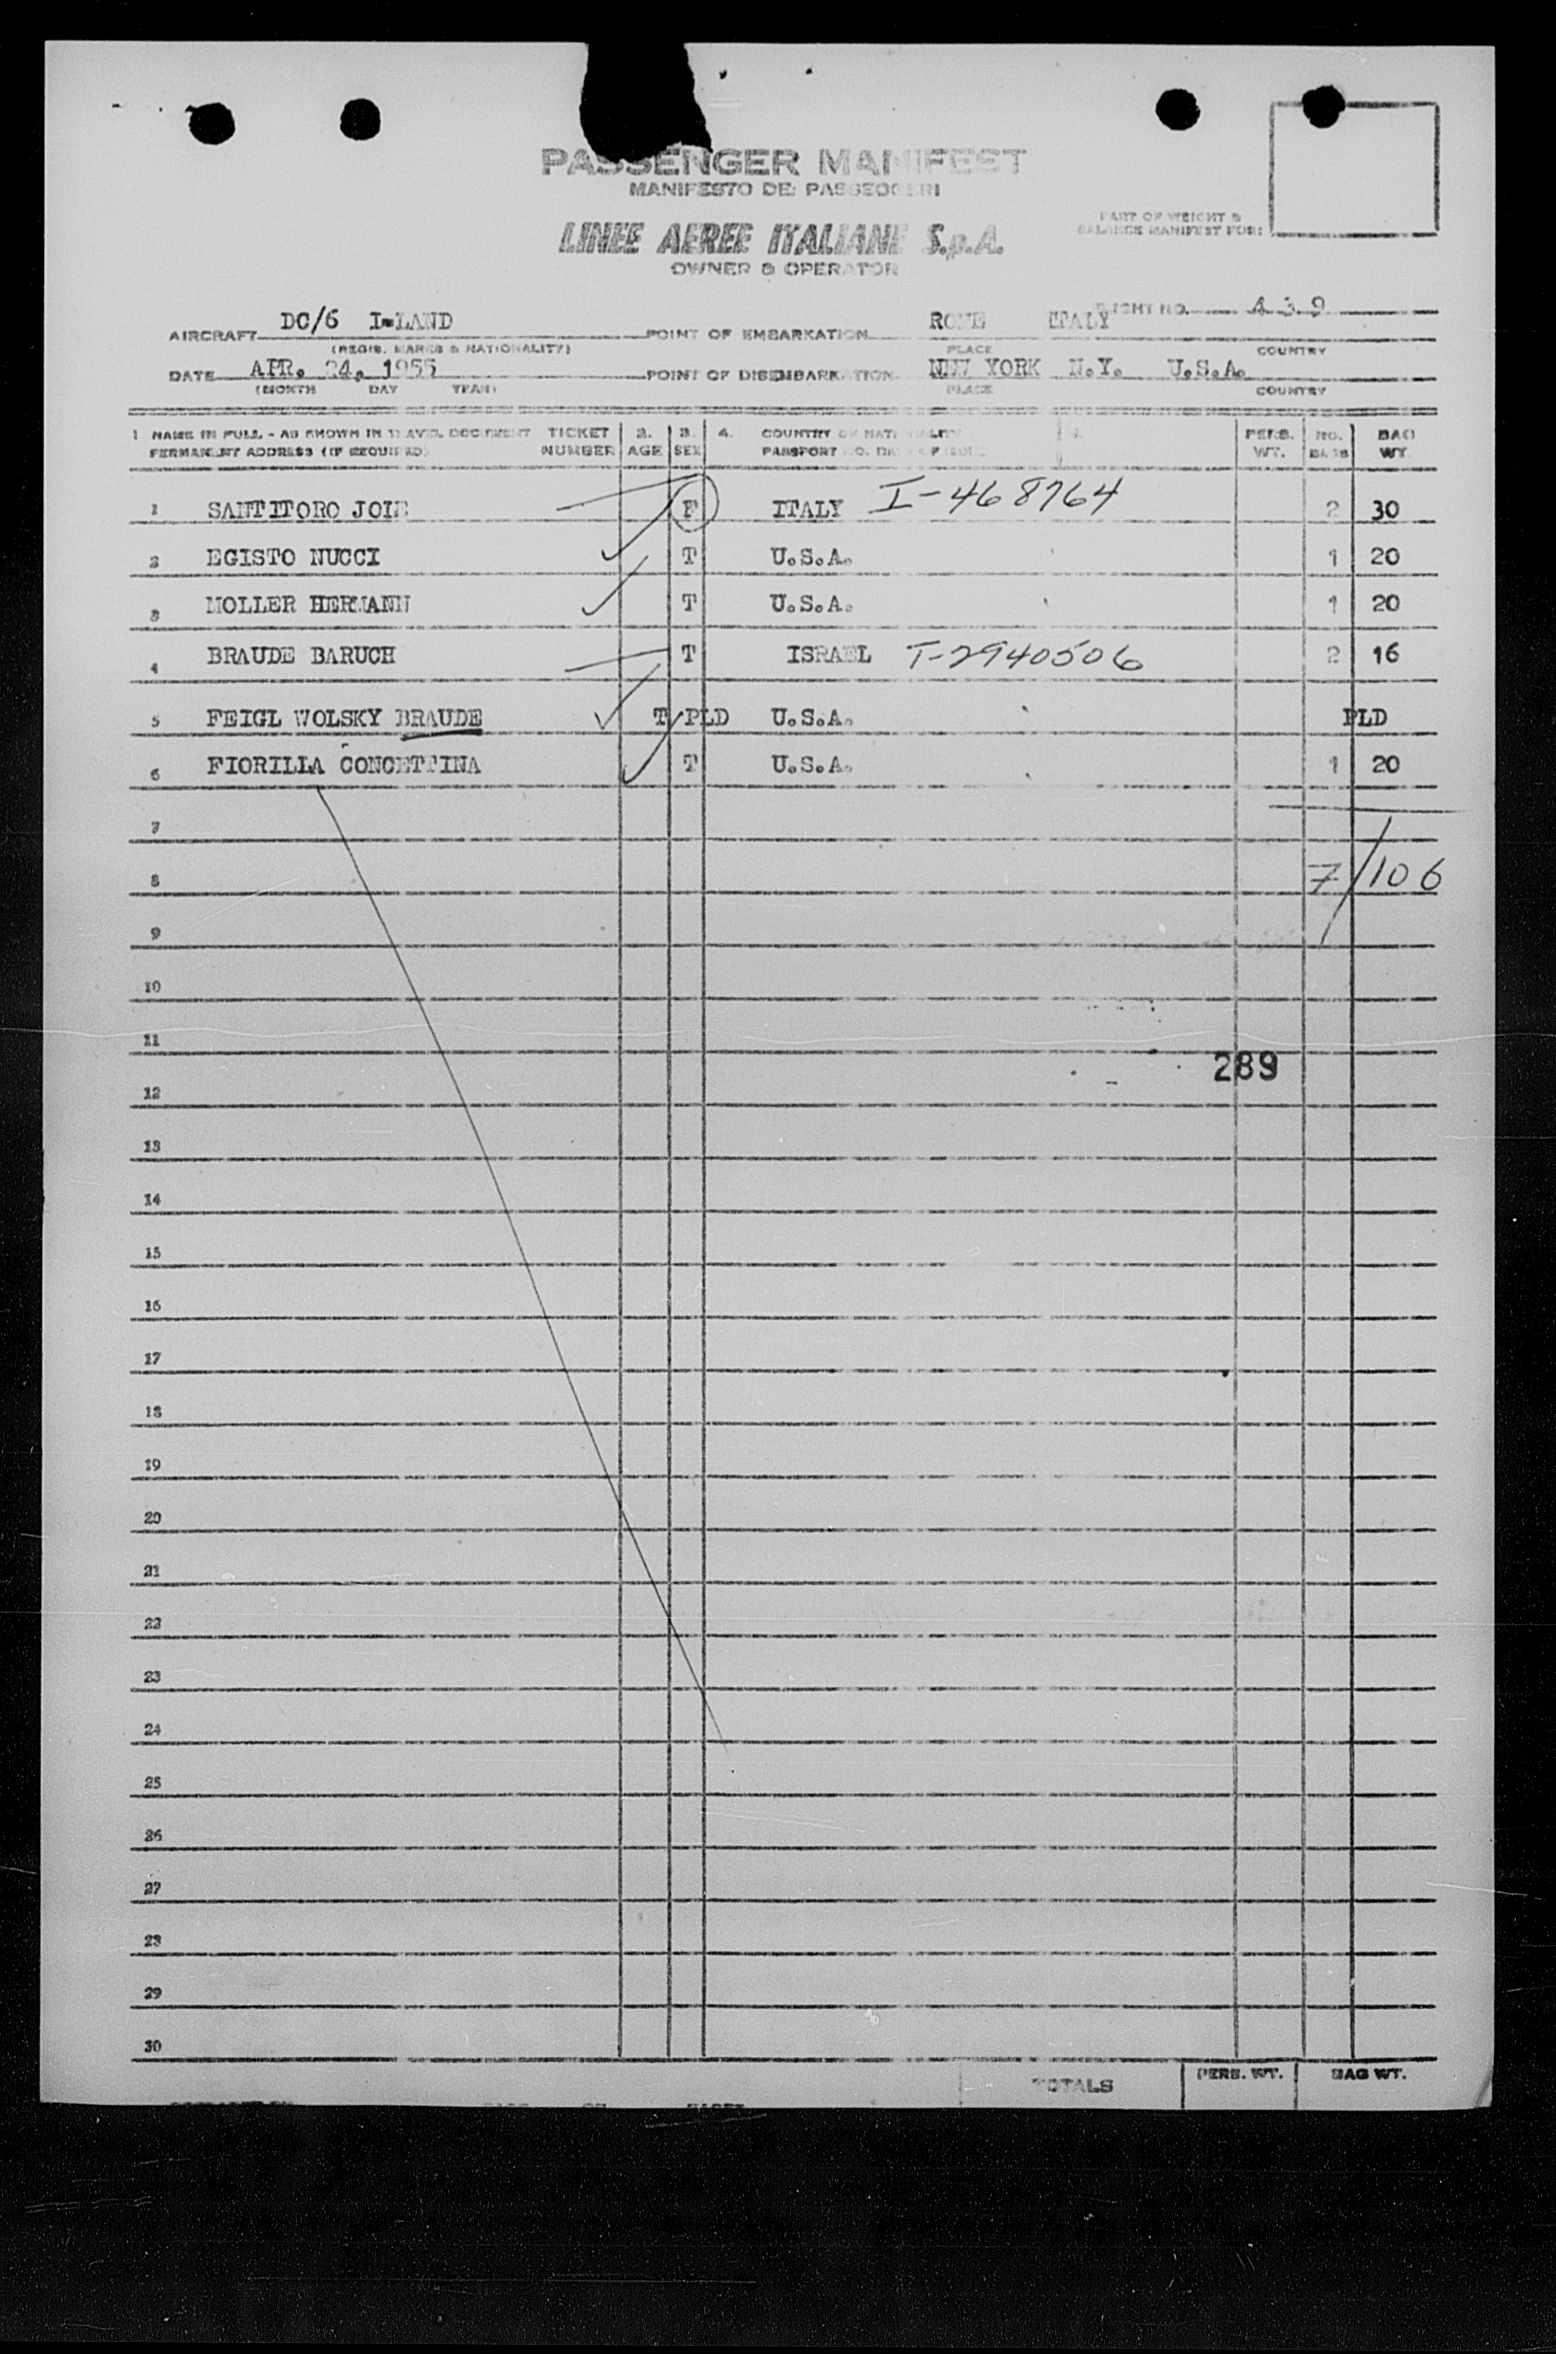 PASSENGER MANIFEST
MANIFESTO DEI PASSEGGERI
LINEE AEREE ITALIANE S.p.A.
OWNER & OPERATOR
PART OF WEIGHT &
BALANCE MANIFEST FOR:
FLIGHT NO. 4 3 9
AIRCRAFT DC/6 I-LAND POINT OF EMBARKATION ROME ITALY
(REGIS. MARKS & NATIONALITY) PLACE COUNTRY
DATE APR. 24, 1955 POINT OF DISEMBARKATION NEW YORK N.Y. U.S.A.
(MONTH DAY YEAR) PLACE COUNTRY
1 NAME IN FULL - AS SHOWN IN TRAVEL DOCUMENT TICKET 2. 3. 4. COUNTRY OF NATIONALITY PERS. NO. BAG
PERMANENT ADDRESS (IF REQUIRED) NUMBER AGE SEX PASSPORT NO. WT. BAGS WT.
1 SANTITORO JOIE F ITALY I-468764 2 30
2 EGISTO NUCCI T U.S.A. 1 20
3 MOLLER HERMANN T U.S.A. 1 20
4 BRAUDE BARUCH T ISRAEL T-2940506 2 16
5 FEIGL WOLSKY BRAUDE T/PLD U.S.A. PLD
6 FIORILLA CONCETTINA T U.S.A. 1 20
7
8 7/106
9
10
11
289
12
13
14
15
16
17
18
19
20
21
22
23
24
25
26
27
28
29
30
TOTALS PERS. WT. BAG WT.